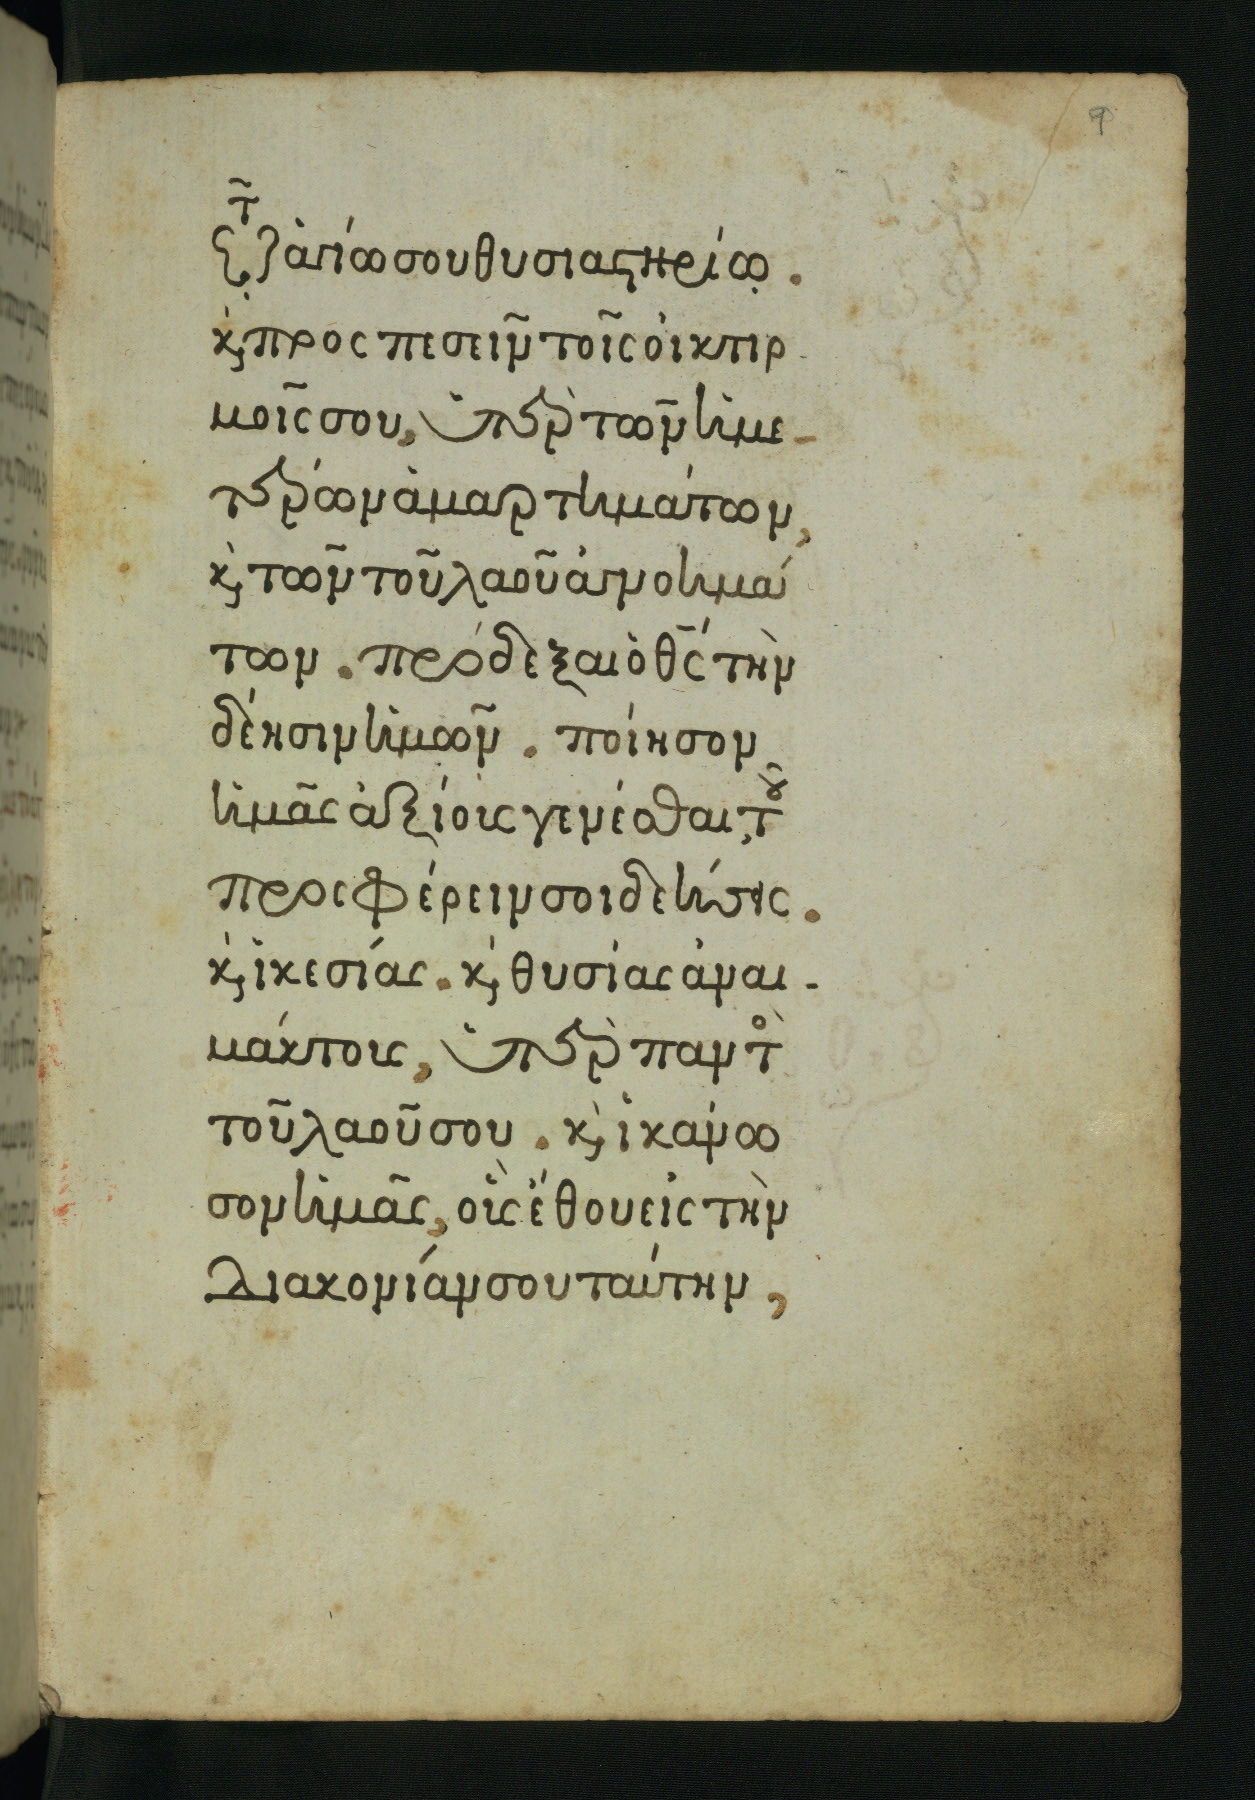 9
τῷ ἁγίω σου θυσιαστηρίῳ .
κ̀ προσπεσεῖν τοῖς οἰκτιρ
μοῖς σου, ὑπὲρ τῶν ἡμε-
τέρων ἁμαρτημάτων,
κ̀ τῶν τοῦ λαοῦ ἀγνοημά
των . πρόδεξαι ὁ θ̅ς̅ τὴν
δέησιν ἡμῶν . ποίησον
ἡμᾶς ἀξίοις γενέσθαι τοῦ
προσφέρειν σοι δεήσεις .
κ̀ ἱκεσίας . κ̀ θυσίας ἀναι-
μάκτοις, ὑπὲρ παντὸ
τοῦ λαοῦ σου . κ̀ ἱκάνω
σον ἡμᾶς, οἷς ἔθου εἰς τὴν
διακονίαν σου ταύτην,